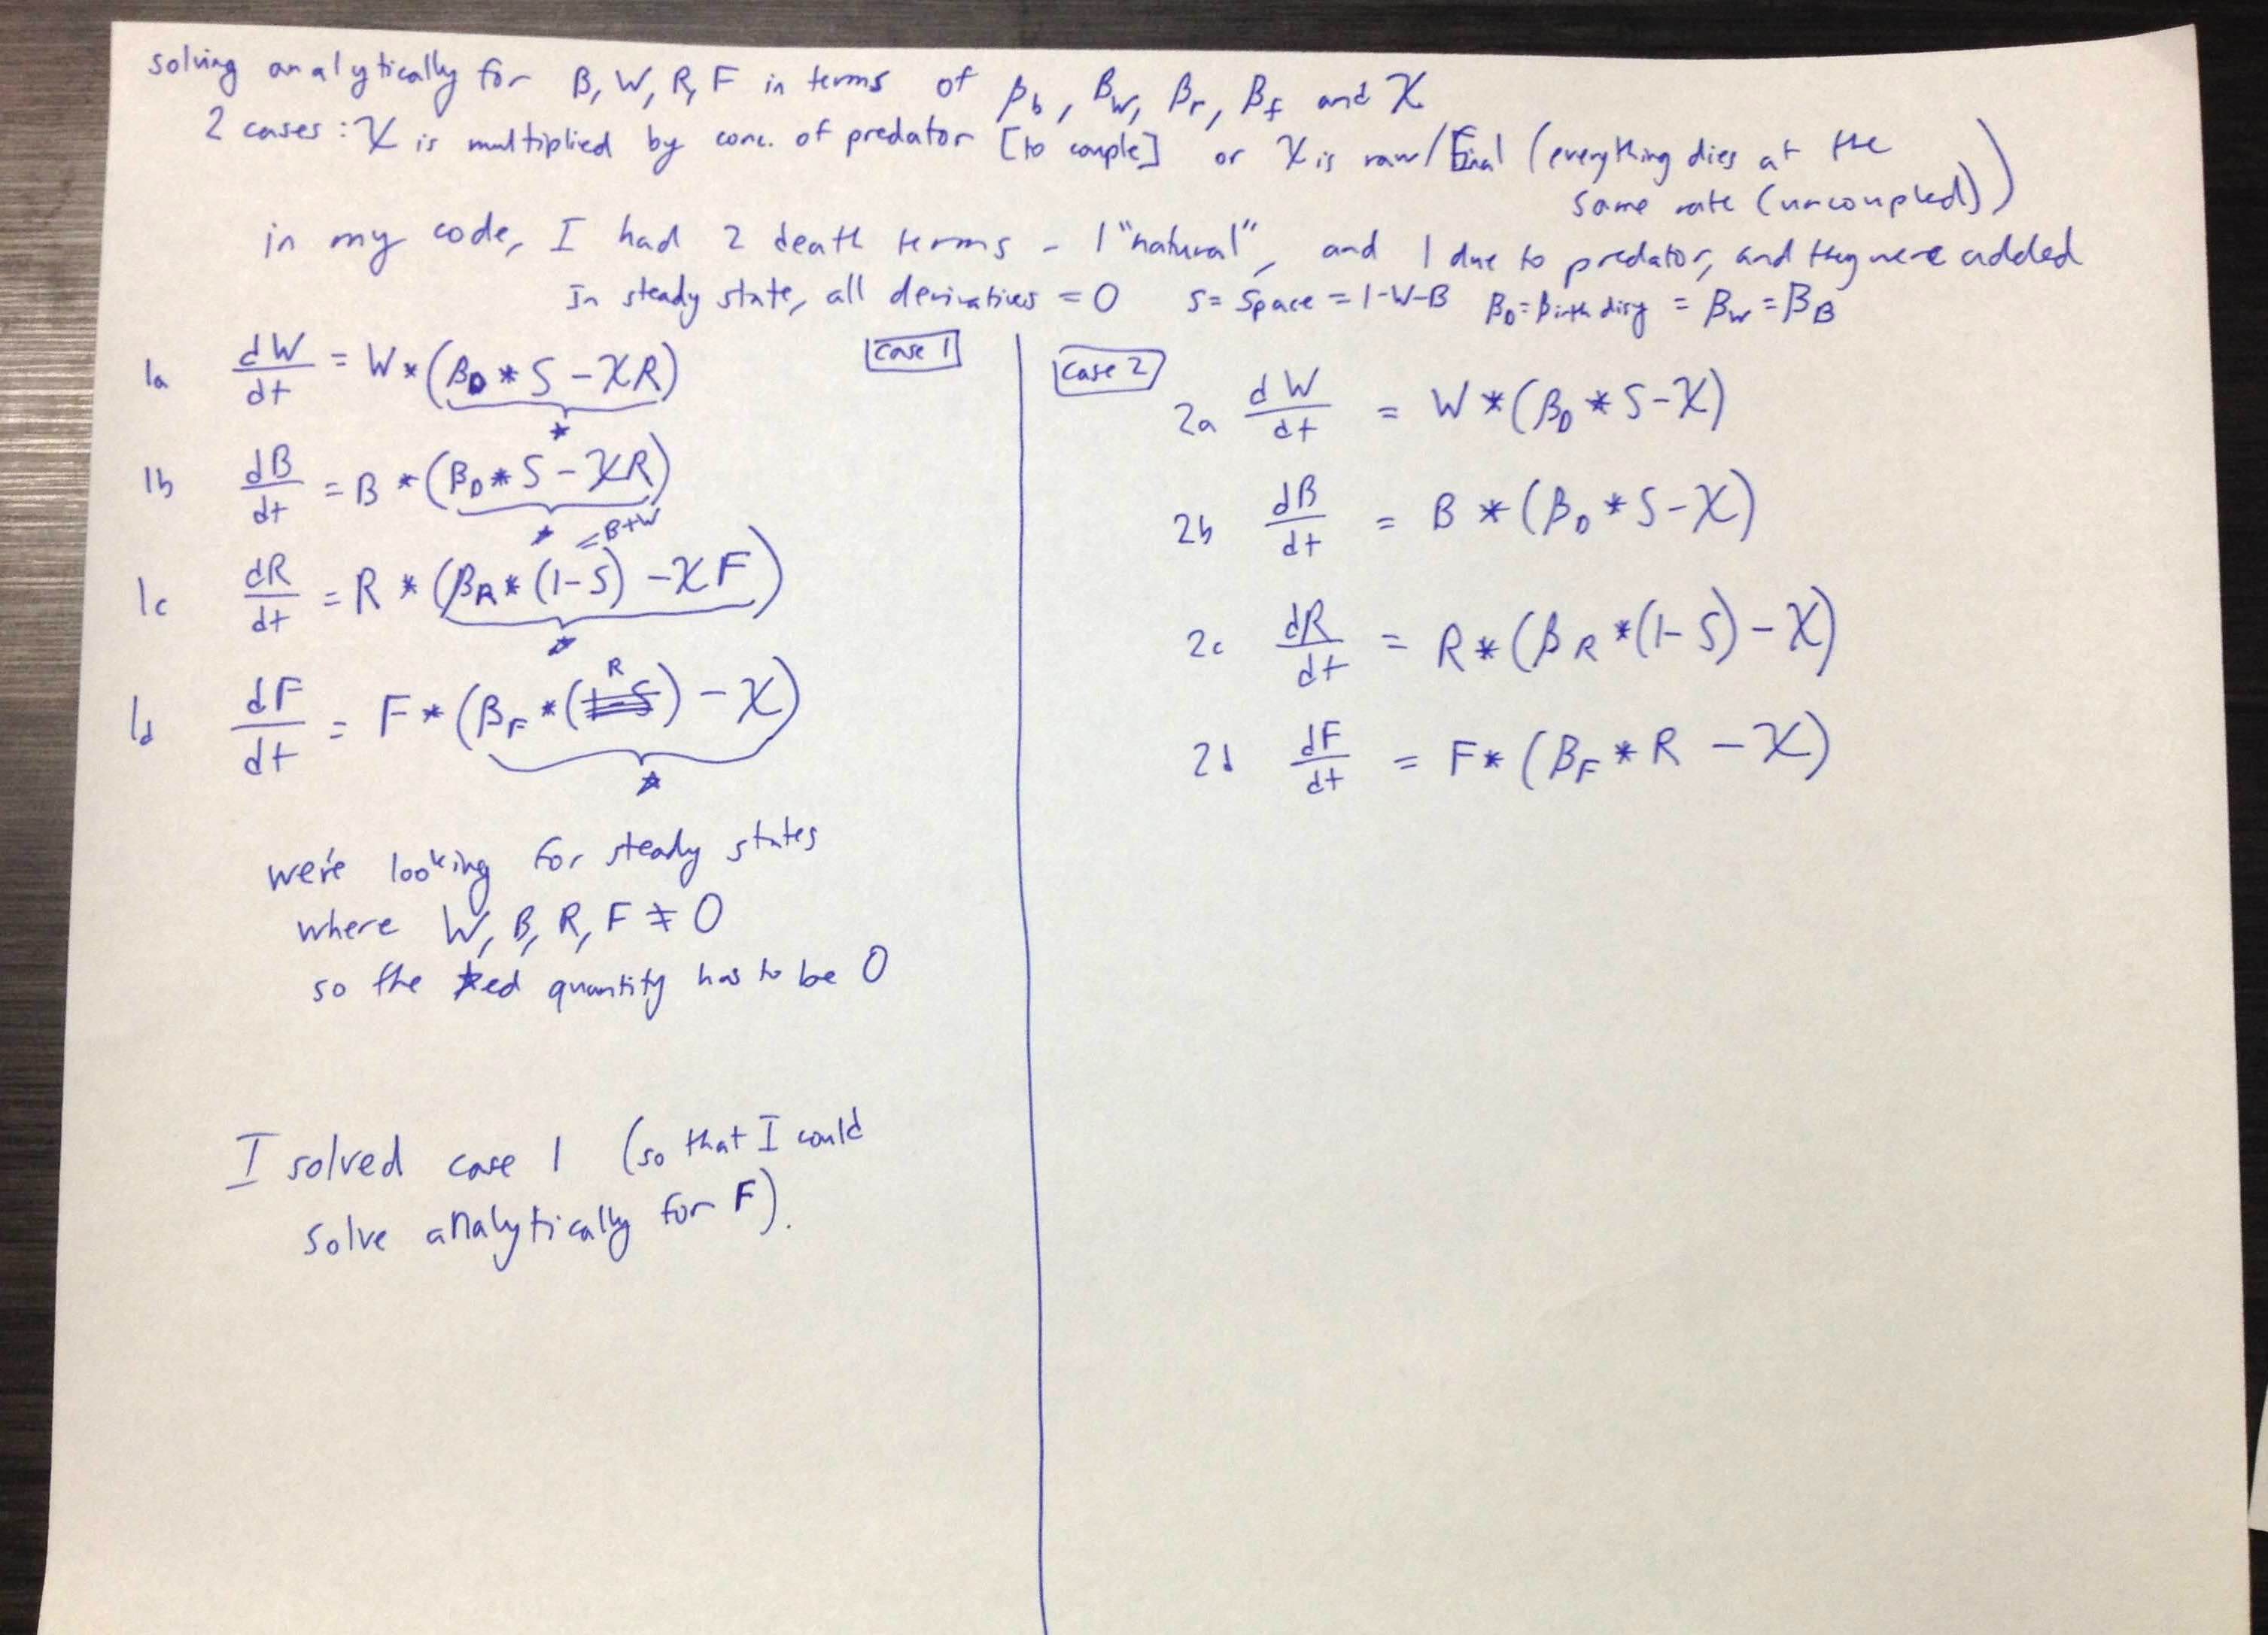 solving analytically for B, W, R, F in terms of βb, βw, βr, βf and χ
2 cases: χ is multiplied by conc. of predator [to couple] or χ is raw/final (everything dies at the
same rate (uncoupled))
in my code, I had 2 death terms - 1 "natural", and 1 due to predator, and they were added
In steady state, all derivatives = 0 S = Space = 1-W-B βD = Birth daisy = βW = βB
Case 1
1a dW/dt = W * (βD * S - χR)
*
1b dB/dt = B * (βD * S - χR)
*
= B+W
1c dR/dt = R * (βR * (1-S) - χF)
*
R
1d dF/dt = F * (βF * (1-S) - χ)
*
we're looking for steady states
where W, B, R, F ≠ 0
so the *ed quantity has to be 0
I solved case 1 (so that I could
solve analytically for F).
Case 2
2a dW/dt = W * (βD * S - χ)
2b dB/dt = B * (βD * S - χ)
2c dR/dt = R * (βR * (1-S) - χ)
2d dF/dt = F * (βF * R - χ)